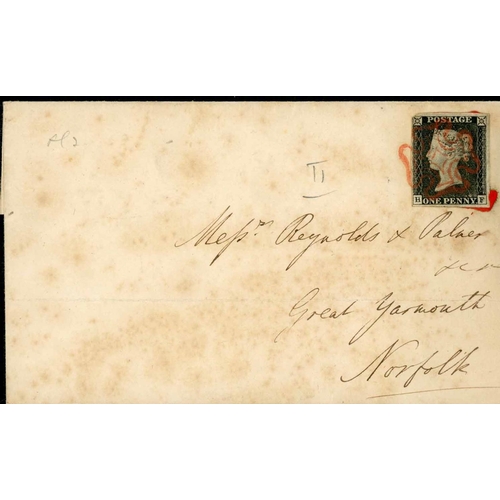 POSTAGE
ONE PENNY
II
Messrs. Reynolds & Palmer
&c &c
Great Yarmouth
Norfolk